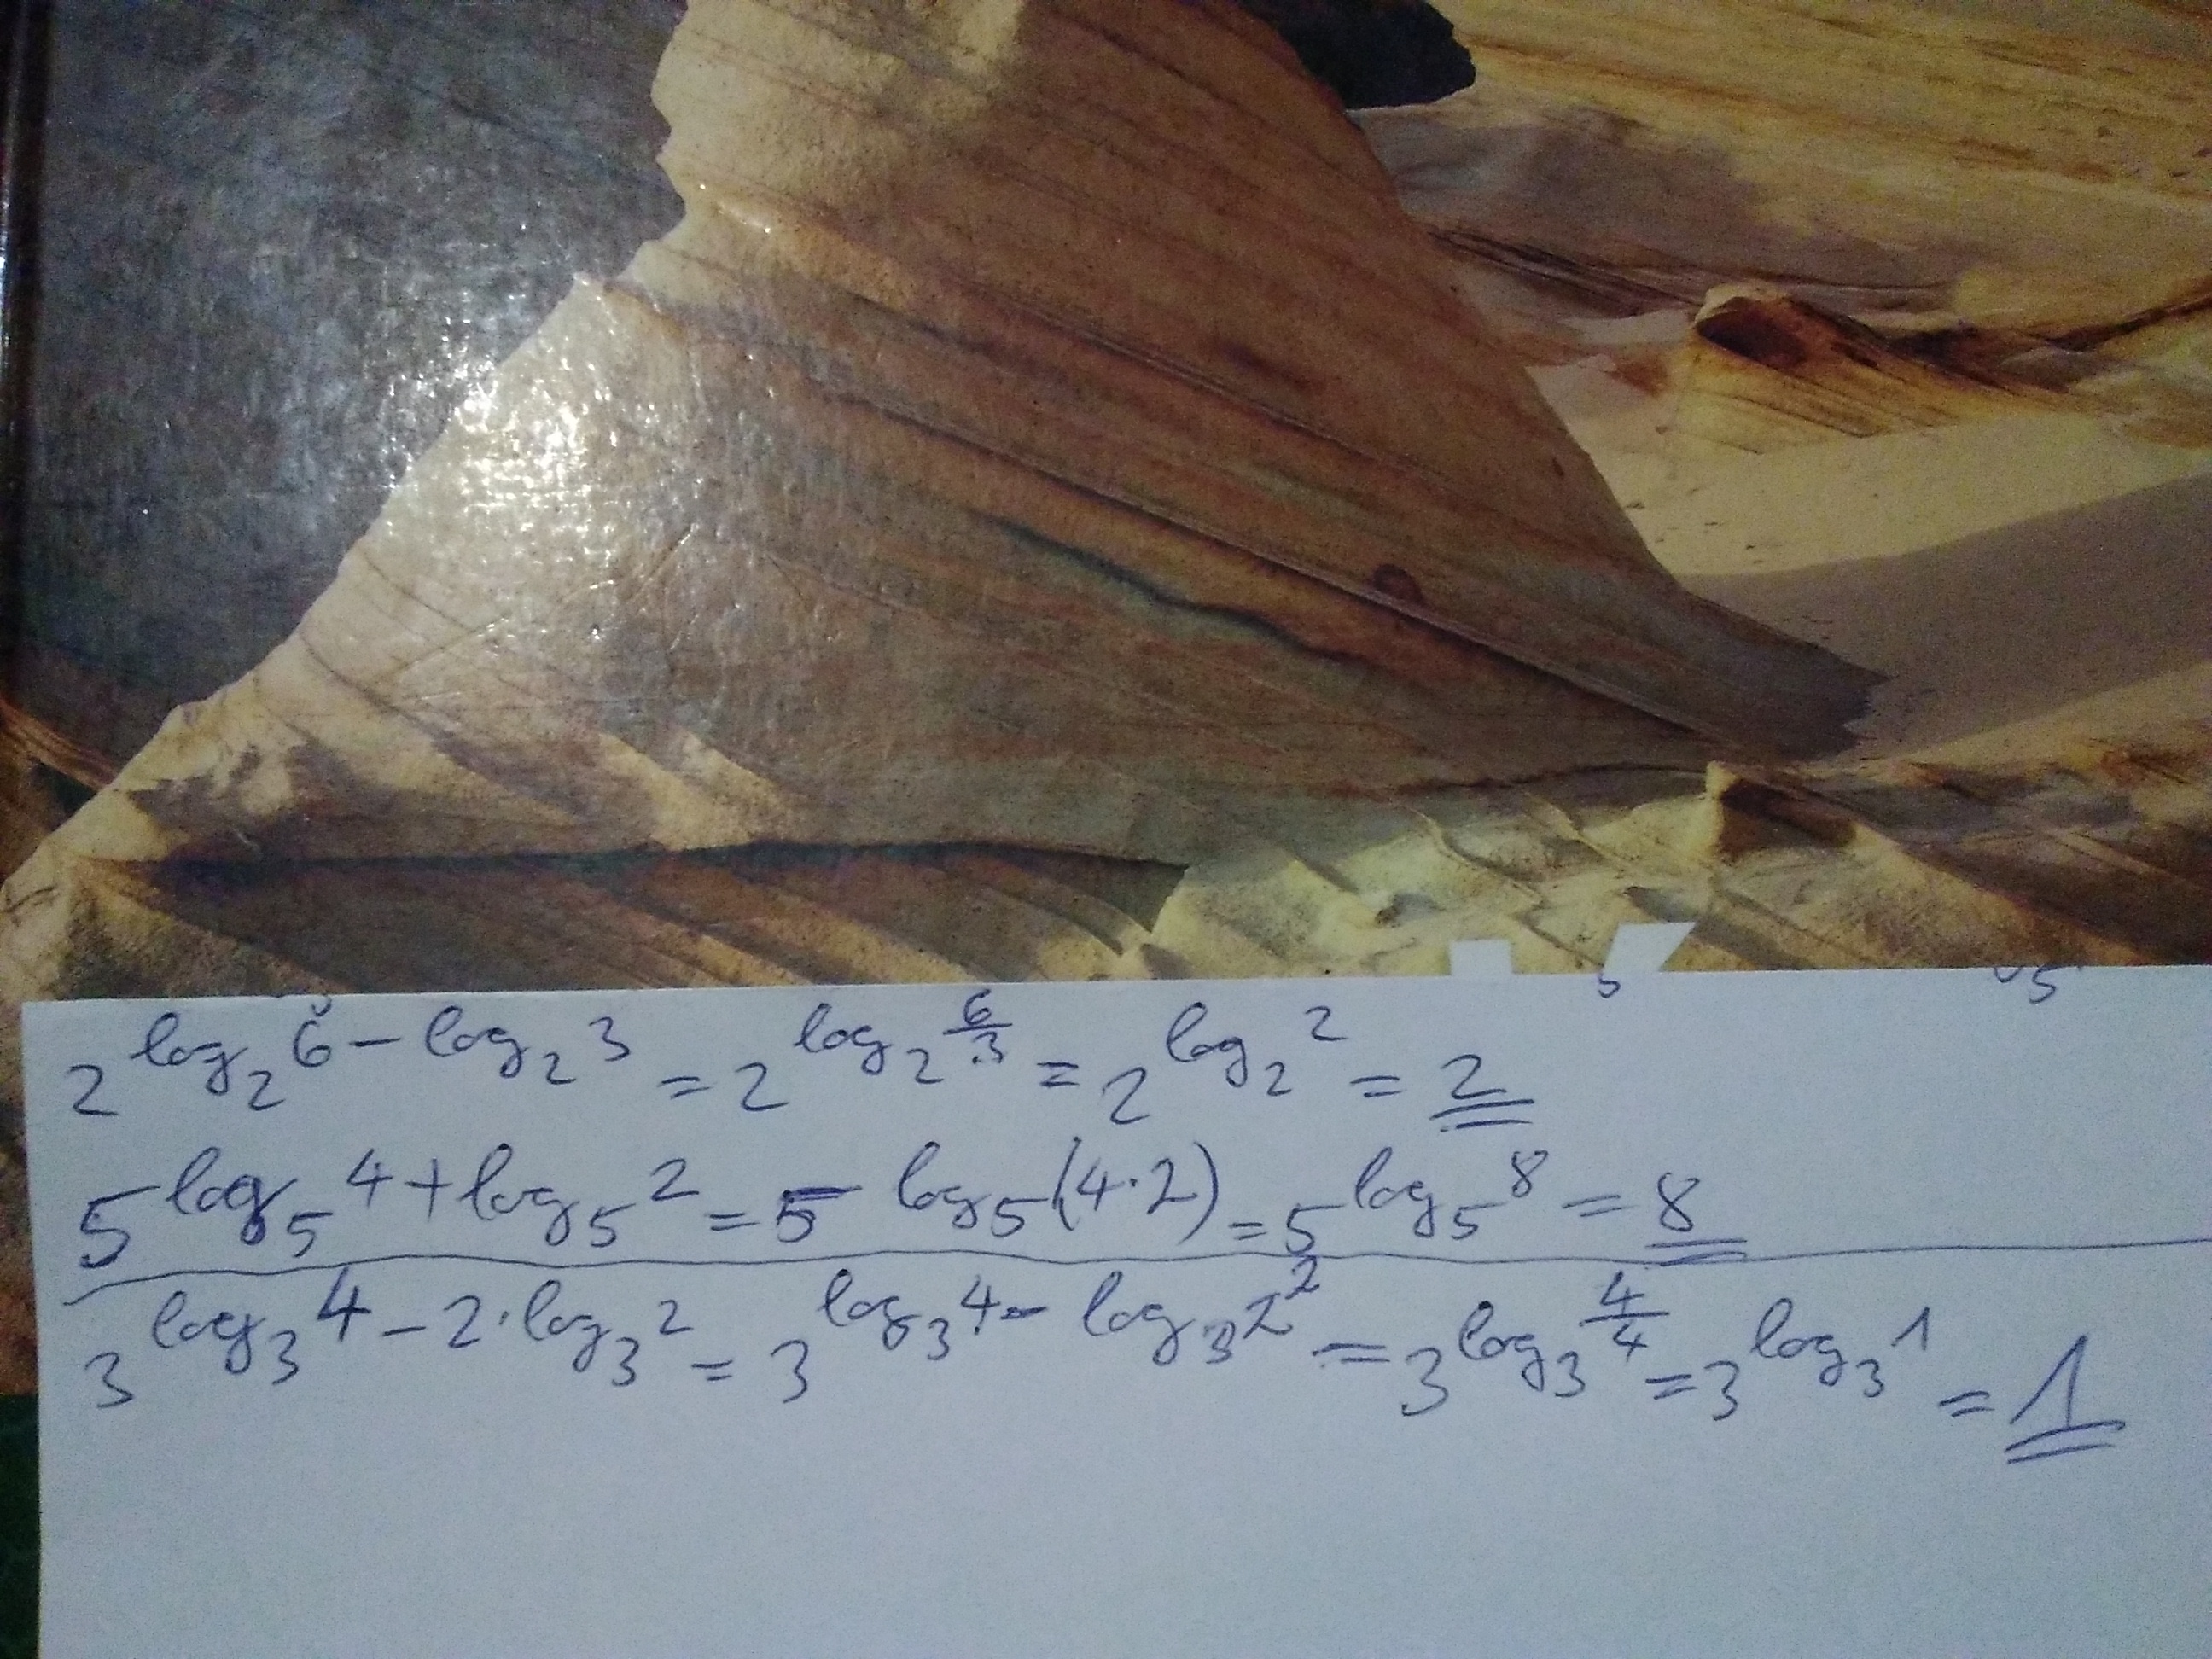 2^{log_2 6 - log_2 3} = 2^{log_2 \frac{6}{3}} = 2^{log_2 2} = 2
5^{log_5 4 + log_5 2} = 5^{log_5 (4·2)} = 5^{log_5 8} = 8
3^{log_3 4 - 2·log_3 2} = 3^{log_3 4 - log_3 2^2} = 3^{log_3 \frac{4}{4}} = 3^{log_3 1} = 1